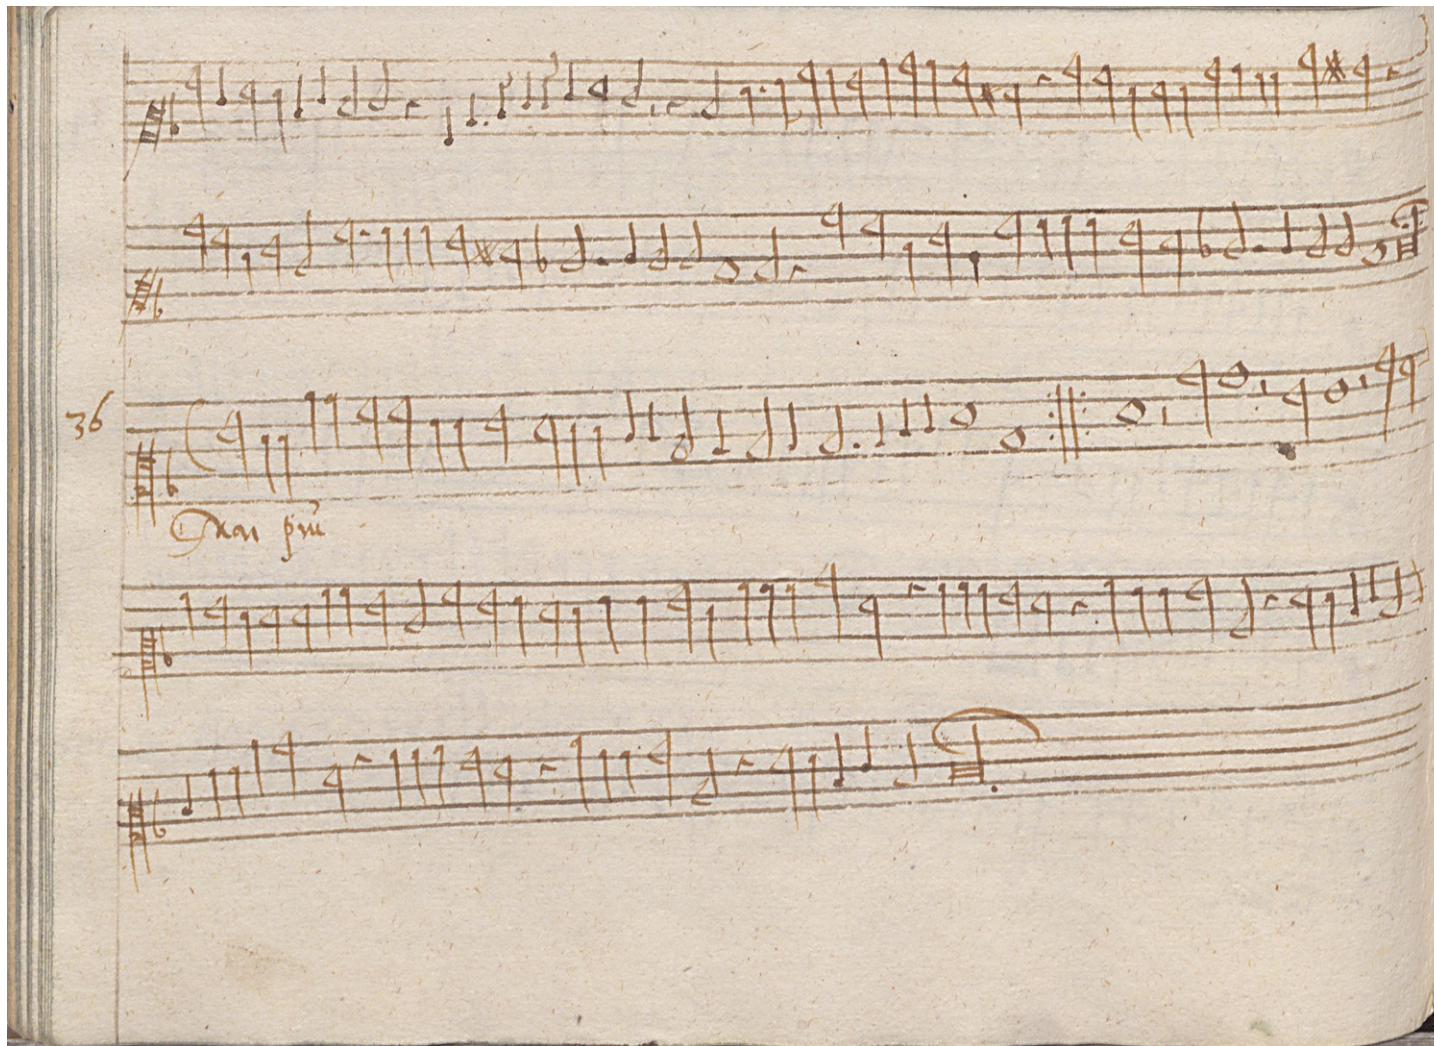 36
Mai piu